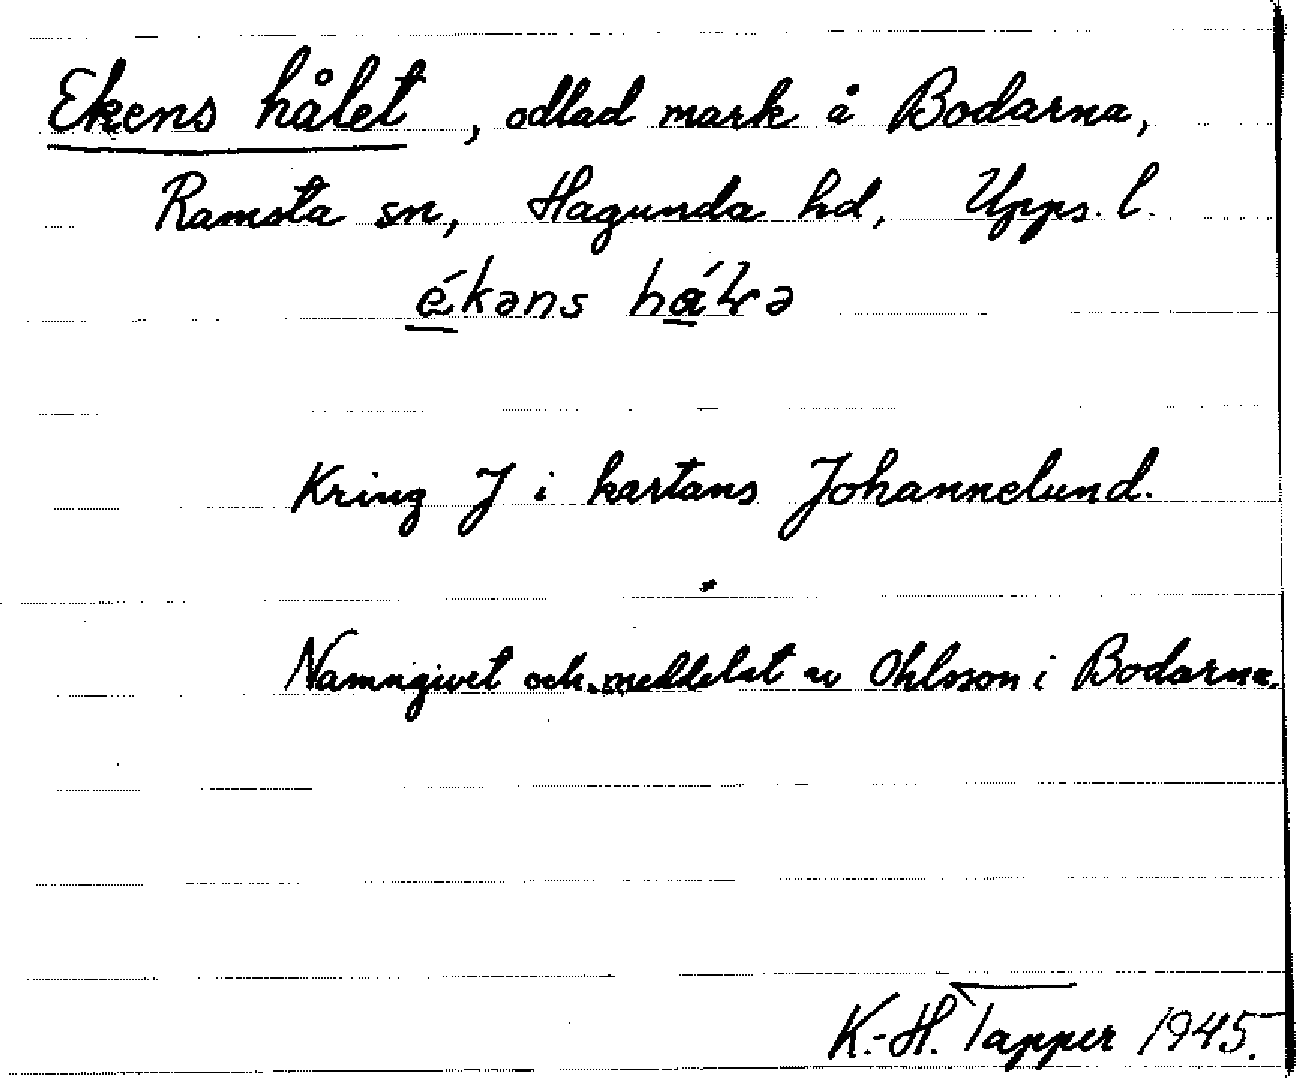 Ekens hålet, odlad mark å Bodarna,
Ramsta sn, Hagunda hd, Upps. l.
ékəns
Kring J i kartans Johannelund.
Namngivet och meddelat av Ohlsson i Bodarna.
K.-H. Tapper 1945.